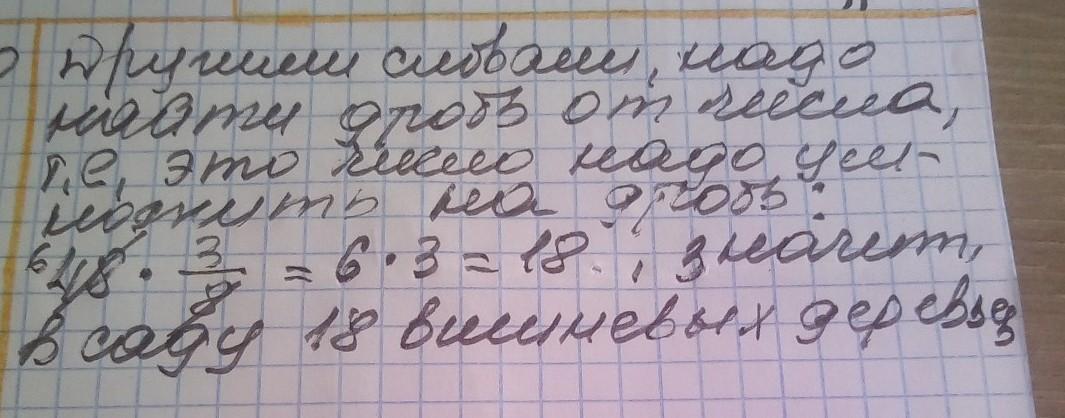 Другими словами, надо
найти дробь от числа,
т.е. это число надо ум-
ножить на дробь:
6 48 · 3/8 = 6 · 3 = 18 , значит,
в саду 18 вишневых деревьев